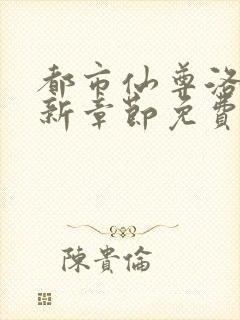 都市仙尊洛
新章節免費
陳貴倫